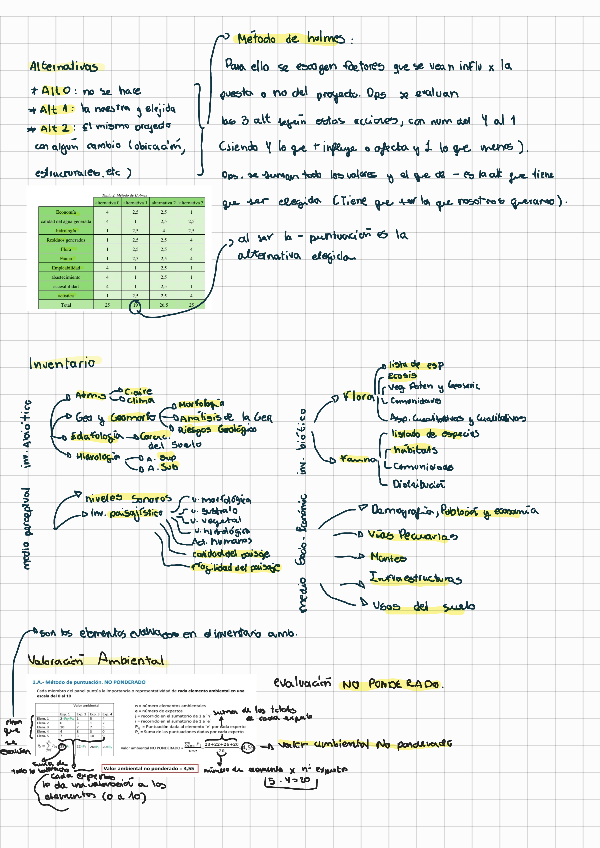 Método de holmes:
Para ello se escogen factores que se vean influ x la
puesta o no del proyecto. Dps se evaluan
las 3 alt según estas acciones, con num del 4 al 1
(siendo 4 lo que + influye o afecta y 1 lo que menos).
Dps. se suman todo los valores y el que de - es la alt que tiene
que ser elegida (Tiene que ser la que nosotros queramos).
Alternativas
+ Alt 0: no se hace
→ Alt 1: la nuestra y elejida
→ Alt 2: El mismo proyecto
con algún cambio (ubicación,
estructurales, etc)
alternativa 0 alternativa 1 alternativa 2
Economía 4 2,5 2,5 1
calidad del agua generada 4 1 2,5 2,5
Hidrología 1 2,5 4 2,5
Residuos generados 1 2,5 2,5 4
Flora 1 2,5 2,5 4
Fauna 1 2,5 2,5 4
Empleabilidad 4 1 2,5 1
abastecimiento 4 1 2,5 1
accesibilidad 4 1 2,5 1
1 2,5 2,5 4
Total 25 19 26,5 25
al ser la - puntuación es la
alternativa elegida
Inventario
inv. Abiótico
Atmos
C. aire
Clima
Geo y Geomorfo
Morfología
Análisis de la Geo
Riesgos Geológico
Edafología
Carac. del Suelo
Hidrología
A. Sup
A. Sub
inv. biótico
Flora
lista de esp
Ecosis
Veg. Poten y Geoserie
Comunidades
Asp. Cuantitativos y Cualitativos
Fauna
listado de especies
hábitats
Comunidades
Distribución
medio perceptual
niveles Sonoros
Inv. paisajístico
U. morfológica
U. sustrato
U. vegetal
U. hidrológica
Act. humanas
calidad del paisaje
fragilidad del paisaje
medio Socio-Económic
Demografía, Población y economía
Vías Pecuarias
Montes
Infraestructuras
Usos del suelo
son los elementos evaluados en el inventario amb.
Valoración Ambiental
1.A.- Método de puntuación. NO PONDERADO
Cada miembro del panel puntúa la importancia o representatividad de cada elemento ambiental en una
escala del 0 al 10
evaluación NO PONDERADO.
Valor ambiental
Exp. 1 Exp. 2 Exp. 3 Exp. 4
n = número elementos ambientales
e = número de expertos
suma de los totales
de cada experto
→ Valor ambiental No ponderado
Valor ambiental no ponderado = 4,55
número de elementos x nº expertos
5 · 4 = 20
cada experto
le da una valoración a los
elementos (0 a 10)